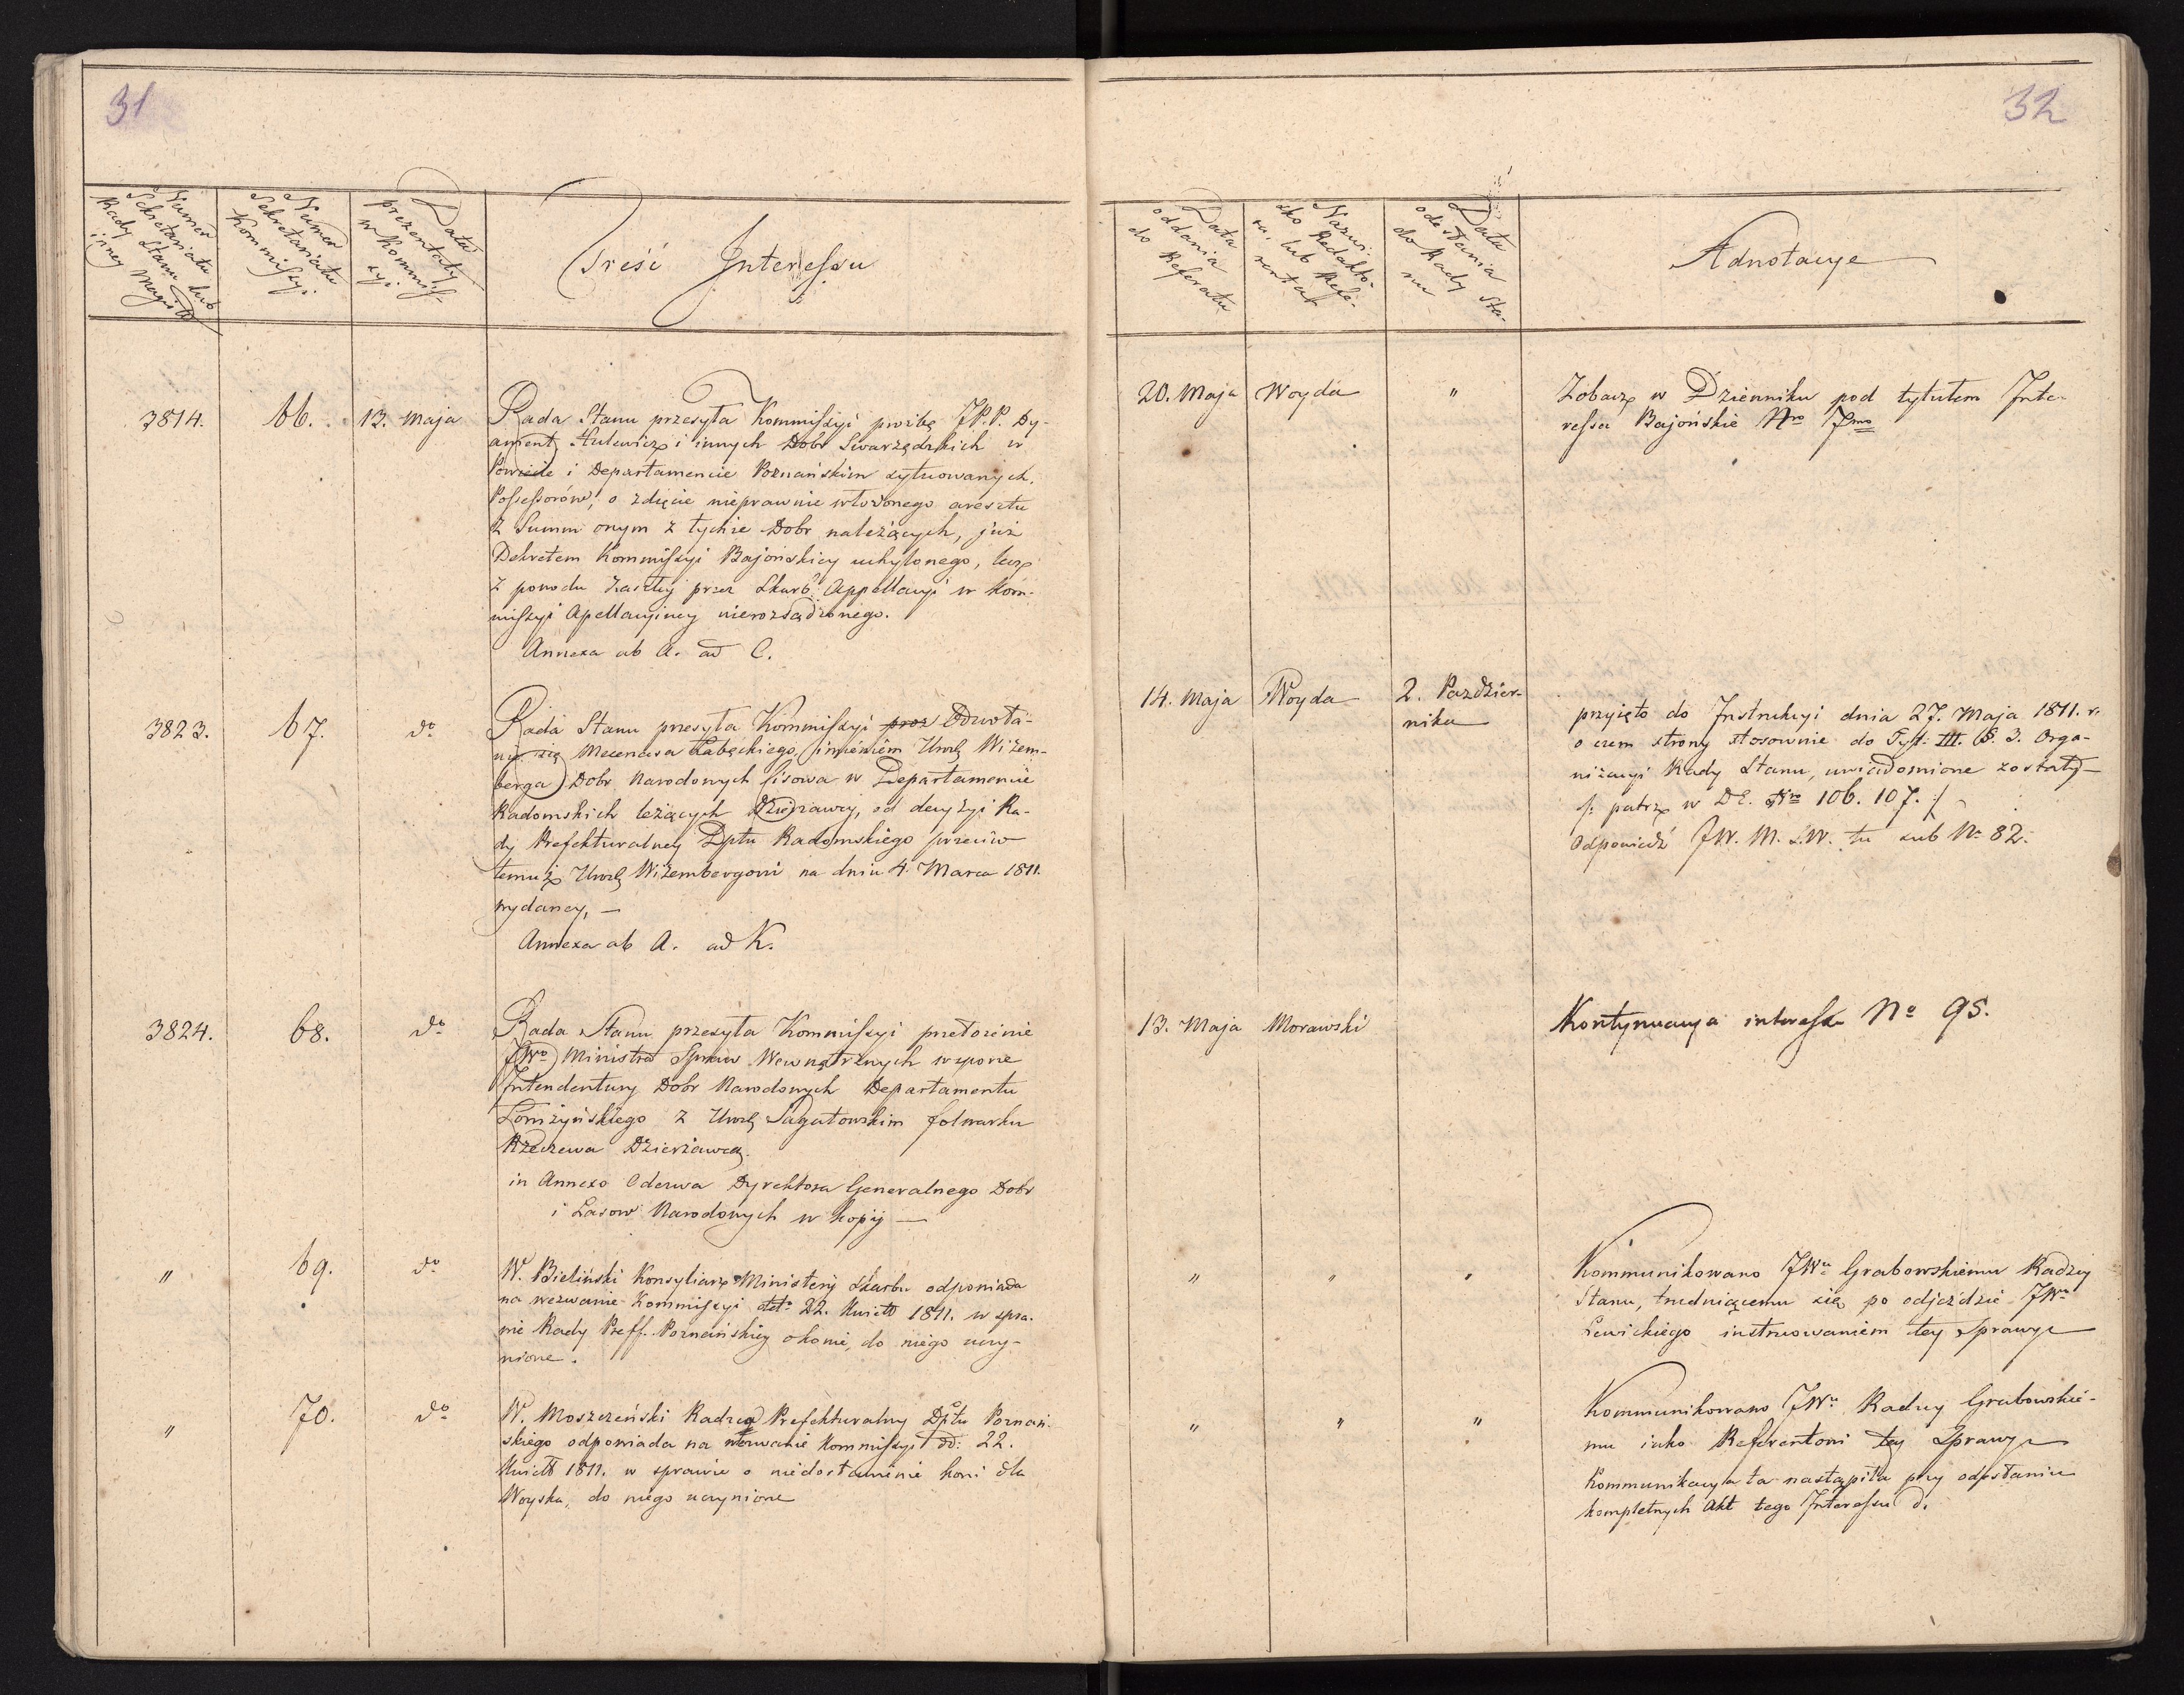 31
Numer
Sekretariatu
Rady Stanu lub
inney Magist
Numer
Sekretariatu
Kommissyi
Data
prezentaty
w Kommis-
syi
Treść Interessu
3814. 66. 13. Maja
Rada Stanu przesyła Kommissyi proźbę JP.P. Dy-
ament, Hulewicz i innych Dobr Swarzędzkich w
Powiecie i Departamencie Poznańskim sytuowanych,
Possessorów, o zdięcie nieprawnie włożonego aresztu
z Summ onym z tychże Dobr należących, już
Dekretem Kommissyi Bajońskiey uchylonego, lecz
z powodu zaszłey przez Skarb Appellacyi w Kom-
missyi Apellacyiney nierozsądzonego.
Annexa ab A. ad C.
3823. 67. do
Rada Stanu przesyła Kommissyi proz Odwoła-
nie się Mecenasa Łabęckiego, imieniem Urodz Wizem-
berga Dobr Narodowych Lisowa w Departamencie
Radomskich leżących Dzierżawcy, od decyzyi Ra-
dy Prefekturalney Dptu Radomskiego przeciw
temuż Urodz Wizembergowi na dniu 4. Marca 1811.
wydaney, —
Annexa ab A. ad K.
3824. 68. do
Rada Stanu przesyła Kommissyi przełożenie
JWo Ministra Spraw Wewnątrznych w sporze
Intendentury Dobr Narodowych Departamentu
Łomżyńskiego z Urodz Sagatowskim folwarku
Rzeczewa Dzierżawcą.
in Annexo Odezwa Dyrektora Generalnego Dobr
i Lasow Narodowych w kopij —
" 69. do
W. Bieliński Konsyliarz Ministerij Skarbu odpowiada
na wezwanie Kommissyi dto 22. Kwiett 1811. w spra-
wie Rady Preff. Poznańskiey o konie, do niego uczy-
nione.
" 70. do
W. Moszczeński Radzca Prefekturalny Dptu Poznań-
skiego odpowiada na wezwanie Kommissyi dd: 22.
Kwiett 1811. w sprawie o niedostawienie koni dla
Woyska, do niego uczynione
32
Data
oddania
do Referatu
Nazwi-
sko Redakto-
ra, lub Refe-
renta
Data
odesłania
do Rady Sta-
nu
Adnotacye
20. Maja Woyda "
Zobacz w Dzienniku pod tytułem Inte-
ressa Bajońskie Nro 7mo
14. Maja Woyda 2. Paździer-
nika
przyięto do Instrukcyi dnia 27. Maja 1811. r.
o czem strony stosownie do Tyt: III. §. 3. Orga-
nizacyi Rady Stanu, uwiadomione zostały —
/: patrz w DE. Nro 106. 107. :/
Odpowiedź JW. M. S.W. tu sub No 82.
13. Maja Morawski
Kontynuacya interessu No 95.
" " "
Kommunikowano JWu Grabowskiemu Radzcy
Stanu, trudniącemu się po odjeździe JWo
Lewickiego instruowaniem tey Sprawy
" " "
Kommunikowano JWu Radzcy Grabowskie-
mu iako Referentowi tey Sprawy
Kommunikacya ta nastąpiła przy odesłaniu
kompletnych Akt tego Interessu d.